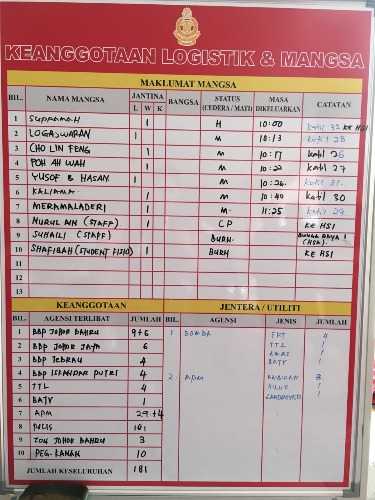 KEANGGOTAAN LOGISTIK & MANGSA
MAKLUMAT MANGSA
BIL. NAMA MANGSA JANTINA BANGSA STATUS MASA CATATAN
L W K (CEDERA / MATI) DIKELUARKAN
1 SUPRAMAH 1 H 10:00 Katil 32 KE HSI
2 LOGASWARAN 1 M 10:13 Katil 28
3 CHO LIN FENG 1 M 10:17 Katil 26
4 POH AH WAH 1 M 10:22 Katil 27
5 YUSOF B HASAN 1 M 10:26 Katil 31
6 KALIANA 1 M 10:40 Katil 30
7 MERAMALADERI 1 M 11:25 Katil 29
8 NURUL AIN (STAFF) 1 CP KE HSI
9 SUHAILI (STAFF) BURN
10 SHAFIBAH (STUDENT FISIO) 1 BURN KE HSI
11
12
13
KEANGGOTAAN
BIL. AGENSI TERLIBAT JUMLAH
1 BBP JOHOR BAHRU 9+6
2 BBP JOHOR JAYA 6
3 BBP TEBRAU 4
4 BBP ISKANDAR PUTRI 4
5 TTL 4
6 BATY 1
7 APM 29+4
8 POLIS 101
9 ZON JOHOR BAHRU 3
10 PEG. KANAN 10
JUMLAH KESELURUHAN 181
JENTERA / UTILITI
BIL. AGENSI JENIS JUMLAH
1 BOMBA FRT 4
TTL 1
1
BATY 1
2 APM 3
HILUX 1
1